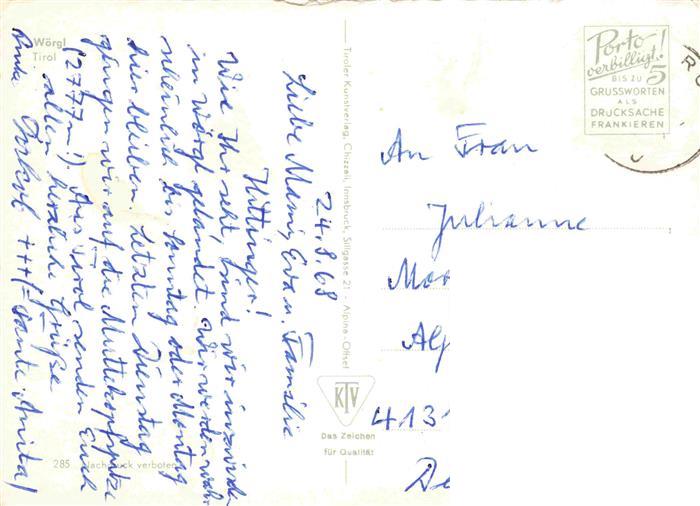 Wörgl
Tirol
24.8.68
Liebe Mami, Eva u. Familie
Hittinger!
Wie Ihr seht, sind wir inzwischen
in Wörgl gelandet. Wir werden wahr-
scheinlich bis Sonntag oder Montag
hier bleiben. Letzten Dienstag
gingen wir auf die Muttekopfspitze
(2777m!). Aus Tirol senden Euch
allen herzliche Grüße
+++ (= Tante Anita)
285 Nachdruck verboten
Tiroler Kunstverlag, Chizzali, Innsbruck, Sillgasse 21 - Alpina-Offset
KTV
Das Zeichen
für Qualität
Porto
verbilligt!
BIS ZU 5
GRUSSWORTEN
ALS
DRUCKSACHE
FRANKIEREN
An Frau
Julianne
Mor
Alp
413
De